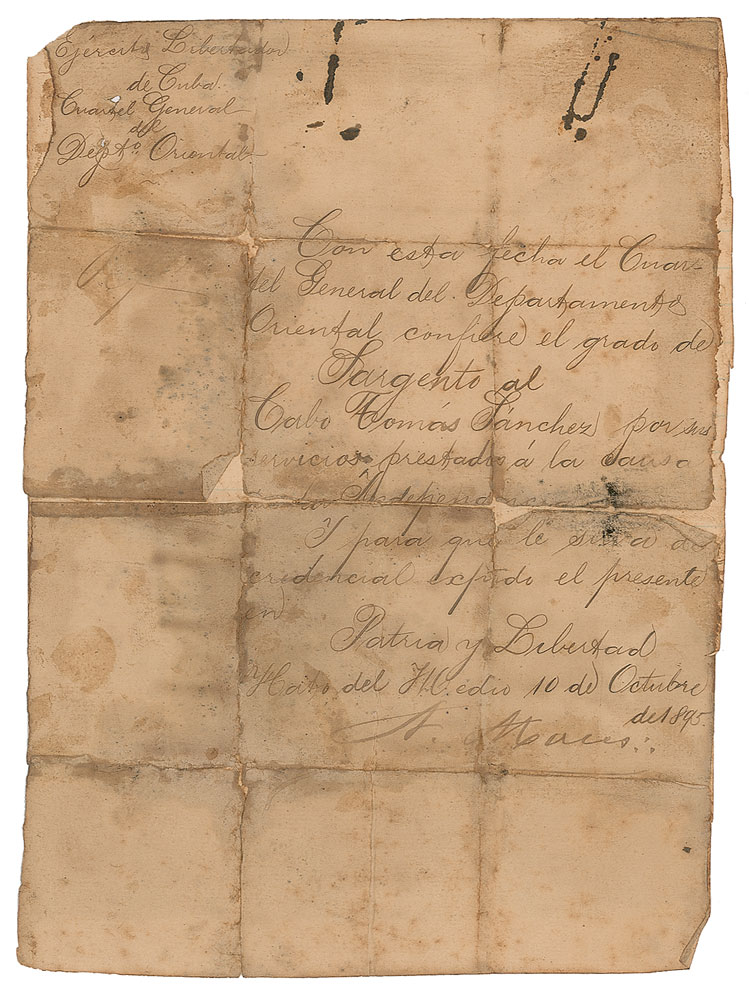 Ejército Libertador
de Cuba.
Cuartel General
del
Depto. Oriental
Con esta fecha el Cuar-
tel General del Departamento
Oriental confiere el grado de
Sargento al
Cabo Tomás Sánchez por sus
servicios prestados á la causa
la Independencia
Y para que le sirva de
credencial expido el presente
en
Patria y Libertad
Hato del Medio 10 de Octubre
de 1895.
A. Maceo